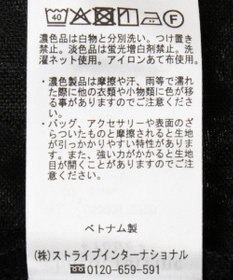 40
F
濃色品は白物と分別洗い。つけ置き
禁止。淡色品は蛍光増白剤禁止。洗
濯ネット使用。アイロンあて布使用。
・濃色製品は摩擦や汗、雨等で濡れ
た際に他の衣類や小物類に色が移
る事がありますのでご注意くださ
い。
・バッグ、アクセサリーや表面のざ
らついたものと摩擦されると生地
が引っかかりやすい特性がありま
す。また、強い力がかかると生地
目が開くことがありますのでご注
意ください。
ベトナム製
(株)ストライプインターナショナル
0120-659-591